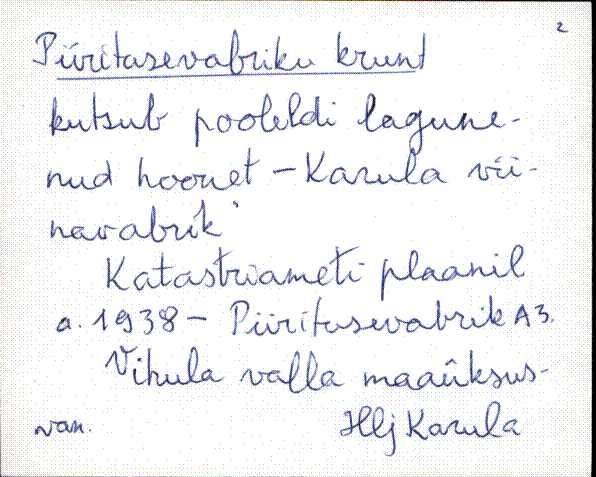 2
Piiritasevabriku krunt
kutsub pooleldi lagune-
nud hoonet - Karula vii-
navabrik
Katastriameti plaanil
a. 1938 - Piiritusevabrik A3.
Vihula valla maaüksus-
van. Hlj Karula